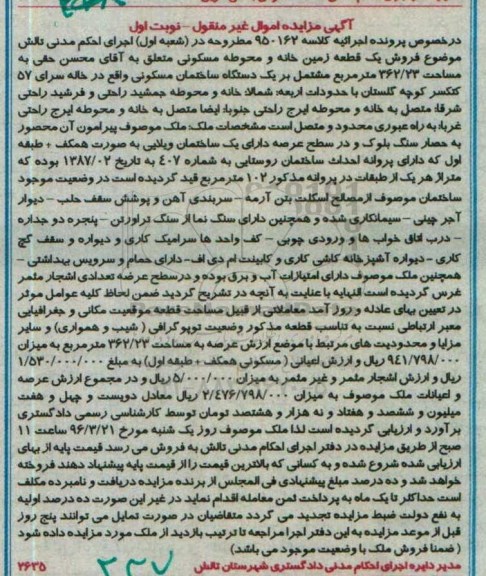 آگهی مزایده اموال غیر منقول - نوبت اول
درخصوص پرونده اجرائیه کلاسه ۹۵۰۱۶۲ مطروحه در (شعبه اول) اجرای احکام مدنی تالش
موضوع فروش یک قطعه زمین خانه و محوطه مسکونی متعلق به آقای محسن حقی به
مساحت ۳۶۲/۲۳ مترمربع مشتمل بر یک دستگاه ساختمان مسکونی واقع در خاله سرای ۵۷
کوچه گلستان با حدودات اربعه: شمالا: خانه و محوطه جمشید راحتی و فرشید راحتی
شرقا: متصل به خانه و محوطه ایرج راحتی جنوبا: ایضا متصل به خانه و محوطه ایرج راحتی
غربا: به راه عبوری محدود و متصل است مشخصات ملک: ملک موصوف پیرامون آن محصور
به حصار سنگ بلوک و در سطح عرصه دارای یک ساختمان ویلایی به صورت همکف + طبقه
اول که دارای پروانه احداث ساختمان روستایی به شماره ۴۰۷ به تاریخ ۱۳۸۷/۰۲ بوده که
متراژ هر یک از طبقات در پروانه مذکور ۱۰۲ مترمربع قید گردیده است در وضعیت موجود
ساختمان موصوف از مصالح اسکلت بتن آرمه - سربندی آهن و پوشش سقف حلب - دیوار
آجر چینی - سیمانکاری شده و همچنین دارای سنگ نما از سنگ تراورتن - پنجره دو جداره
- درب اتاق خواب ها و ورودی چوبی - کف واحد ها سرامیک کاری و دیواره و سقف گچ
کاری - دیواره آشپزخانه کاشی کاری و کابینت ام دی اف - دارای حمام و سرویس بهداشتی -
همچنین ملک موصوف دارای امتیازات آب و برق بوده و درسطح عرصه تعدادی اشجار مثمر
غرس گردیده است النهایه با عنایت به آنچه در تشریح گردید ضمن لحاظ کلیه عوامل موثر
در تعیین بهای عادله و روز آمد معاملاتی از قبیل مساحت قطعه موقعیت مکانی و جغرافیایی
معبر ارتباطی نسبت به تناسب قطعه مذکور وضعیت توپوگرافی ( شیب و همواری) و سایر
مزایا و محدودیت های مرتبط با موضع ارزش عرصه به مساحت ۳۶۲/۲۳ مترمربع به میزان
۹۴۱/۷۹۸/۰۰۰ ریال و ارزش اعیانی ( مسکونی همکف + طبقه اول) به مبلغ ۱/۵۳۰/۰۰۰/۰۰۰
ریال و ارزش اشجار مثمر و غیر مثمر به میزان ۵/۰۰۰/۰۰۰ ریال و در مجموع ارزش عرصه
و اعیانات ملک موصوف به میزان ۲/۴۷۶/۷۹۸/۰۰۰ ریال معادل دویست و چهل و هفت
میلیون و ششصد و هفتاد و نه هزار و هشتصد تومان توسط کارشناسی رسمی دادگستری
برآورد و ارزیابی گردیده است لذا ملک موصوف روز یک شنبه مورخ ۹۶/۳/۲۱ ساعت ۱۱
صبح از طریق مزایده در دفتر اجرای احکام مدنی تالش به فروش می رسد قیمت پایه از بهای
ارزیابی شده شروع شده و به کسانی که بالاترین قیمت را از قیمت پایه پیشنهاد دهند فروخته
خواهد شد و ده درصد مبلغ پیشنهادی فی المجلس از برنده مزایده دریافت و نامبرده مکلف
است حداکثر تا یک ماه به پرداخت ثمن معامله اقدام نماید در غیر این صورت ده درصد اولیه
به نفع دولت ضبط مزایده تجدید می گردد متقاضیان در صورت تمایل می توانند پنج روز
قبل از موعد مزایده به این دفتر اجرا مراجعه تا ترتیب بازدید از ملک مورد مزایده داده شود
( ضمنا فروش ملک با وضعیت موجود می باشد)
مدیر دایره اجرای احکام مدنی دادگستری شهرستان تالش
۲۶۳۵
۲۲۷